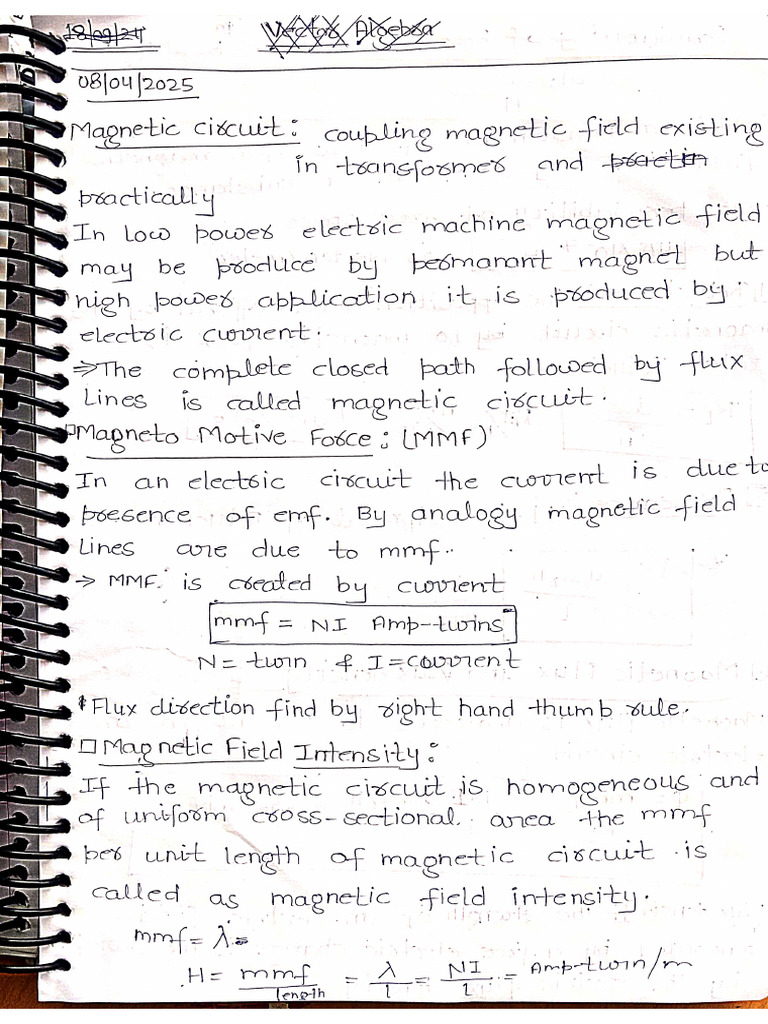 18/09/24 Vector Algebra
08/04/2025
Magnetic circuit: coupling magnetic field existing
in transformer and
practically
In low power electric machine magnetic field
may be produce by permanant magnet but
high power application it is produced by
electric current.
⇒ The complete closed path followed by flux
Lines is called magnetic circuit.
□ Magneto Motive Force: (MMF)
In an electric circuit the current is due to
presence of emf. By analogy magnetic field
Lines are due to mmf.
→ MMF is created by current
mmf = NI Amp-turns
N = turn & I = current
* Flux direction find by right hand thumb rule.
□ Magnetic Field Intensity:
If the magnetic circuit is homogeneous and
of uniform cross-sectional area the mmf
per unit length of magnetic circuit is
called as magnetic field intensity.
mmf = λ =
H = mmf/length = λ/l = NI/l = Amp-turn/m